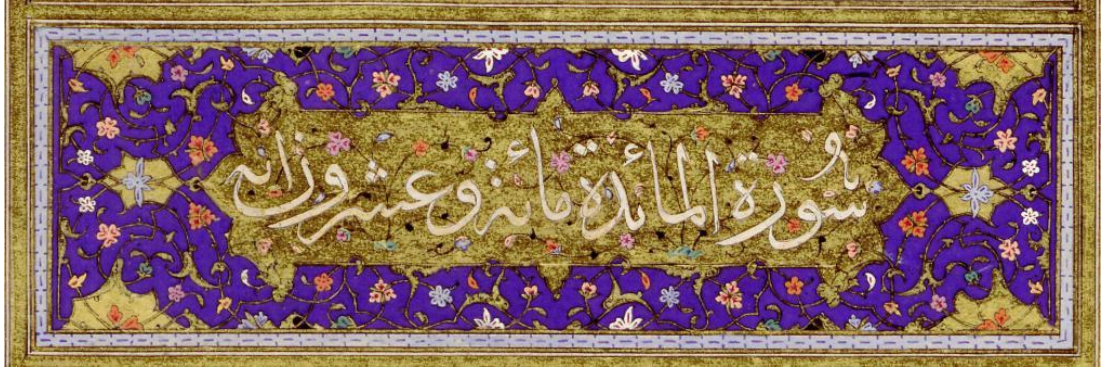 سورة المائدة مائة وعشرون آية